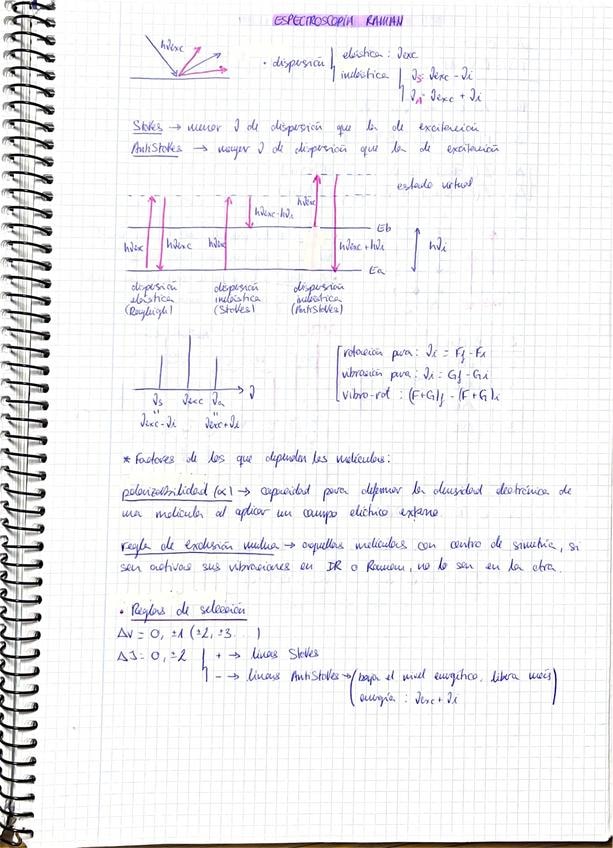 ESPECTROSCOPÍA RAMAN
hνexc
• dispersión
elástica: νexc
inelástica
νs: νexc - νi
νA: νexc + νi
Stokes → menor ν de dispersión que la de excitación
AntiStokes → mayor ν de dispersión que la de excitación
estado virtual
hνexc
hνexc - hνi
Eb
hνexc
hνexc
hνexc
hνexc + hνi
hνi
Ea
dispersión elástica (Rayleigh)
dispersión inelástica (Stokes)
dispersión inelástica (AntiStokes)
νs
νexc
νa
ν
νexc - νi
νexc + νi
rotación pura: νi = Ff - Fi
vibración pura: νi = Gf - Gi
vibro-rot: (F+G)f - (F+G)i
* Factores de los que dependen las moléculas:
polarizabilidad (α) → capacidad para deformar la densidad electrónica de
una molécula al aplicar un campo eléctrico externo.
regla de exclusión mutua → aquellas moléculas con centro de simetría, si
son activas sus vibraciones en IR o Raman, no lo son en la otra.
• Reglas de selección
Δv = 0, ±1 (±2, ±3...)
ΔJ = 0, ±2
+ → líneas Stokes
- → líneas AntiStokes → (baja el nivel energético, libera más
energía: νexc + νi)